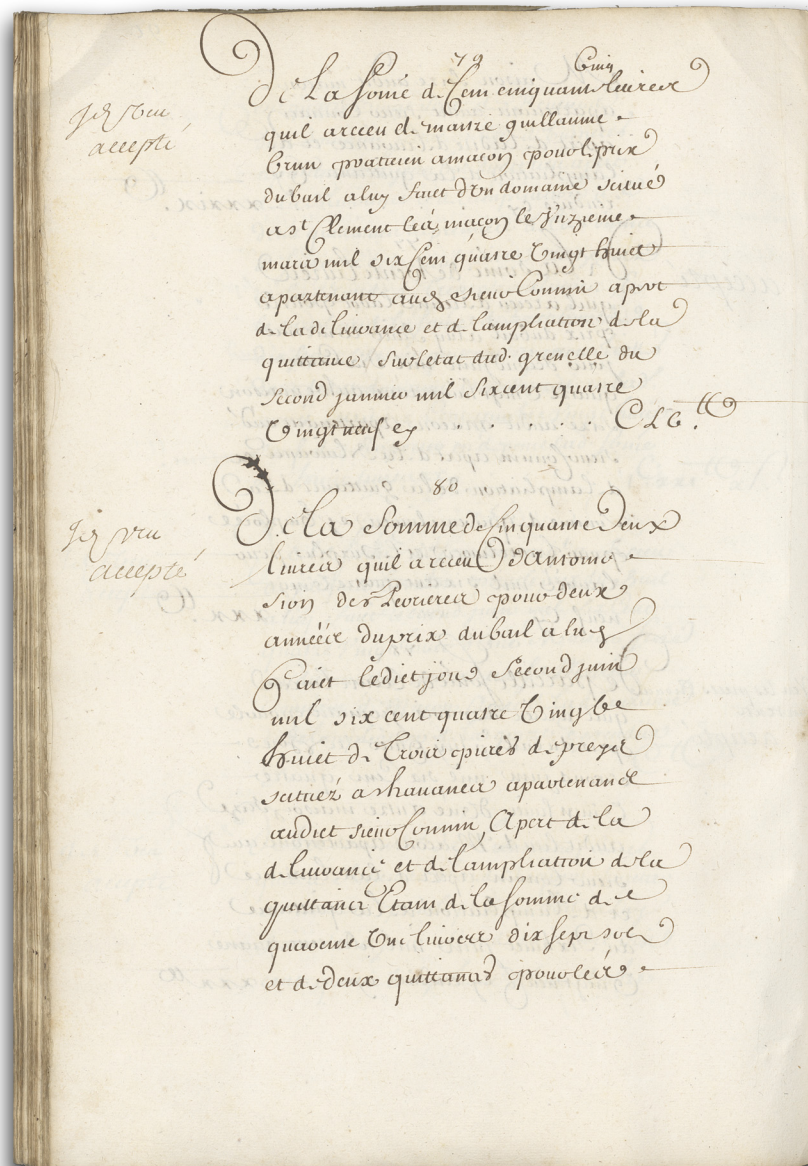 79
De La some de Cent cinquante Cinq livres
quil a receu de maitre guillaume
brun praticien a macon pour le prix
du bail a luy faict d'un domaine scitué
a st Clement les macon le unzieme
mars mil six Cent quatre vingt huict
apartenant aud sieur Connin apert
de la delivrance et de lampliation de la
quittance sur letat dud. grenelle du
second janvier mil six cent quatre
vingt neuf cy . . . . . . CLV.tt
Je lay veu
accepté
80
De la Somme de Cinquante Deux
livres quil a receu d'Antoine
sion des Perrieres pour deux
années du prix du bail a luy
faict le dict jour second juin
mil six cent quatre vingt
huict de Trois pieces de preys
scituez a chavanes apartenant
audict sieur Connin, Apert de la
delivrance et de lampliation de la
quittance Etant de la somme de
quarente une livres dix sept sols
et de deux quittances pour les
Je lay veu
accepté